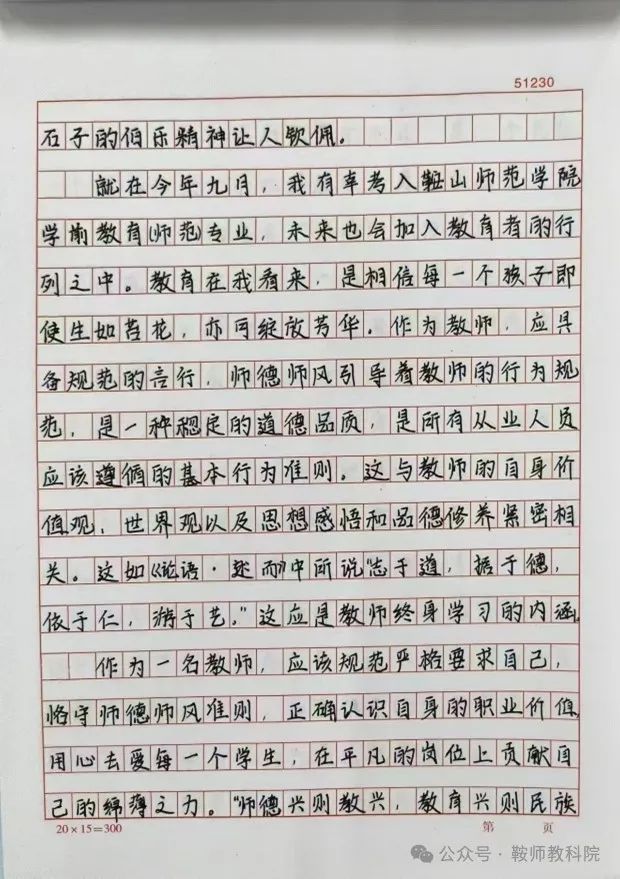 51230
石子的伯乐精神让人钦佩。
就在今年九月，我有幸考入鞍山师范学院
学前教育(师范)专业，未来也会加入教育者的行
列之中。教育在我看来，是相信每一个孩子即
使生如苔花，亦可绽放芳华。作为教师，应具
备规范的言行，师德师风引导着教师的行为规
范，是一种稳定的道德品质，是所有从业人员
应该遵循的基本行为准则。这与教师的自身价
值观、世界观以及思想感悟和品德修养紧密相
关。这如《论语·述而》中所说“志于道，据于德，
依于仁，游于艺。”这应是教师终身学习的内涵。
作为一名教师，应该规范严格要求自己，
恪守师德师风准则，正确认识自身的职业价值，
用心去爱每一个学生，在平凡的岗位上贡献自
己的绵薄之力。“师德兴则教兴，教育兴则民族
20×15=300
第 页
公众号·鞍师教科院